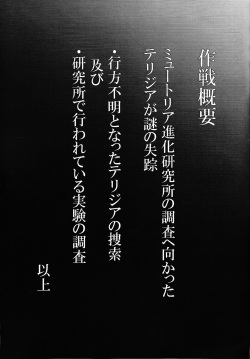 作戦概要
ミュートリア進化研究所の調査へ向かった
テリジアが謎の失踪
・行方不明となったテリジアの捜索
及び
・研究所で行われている実験の調査
以上